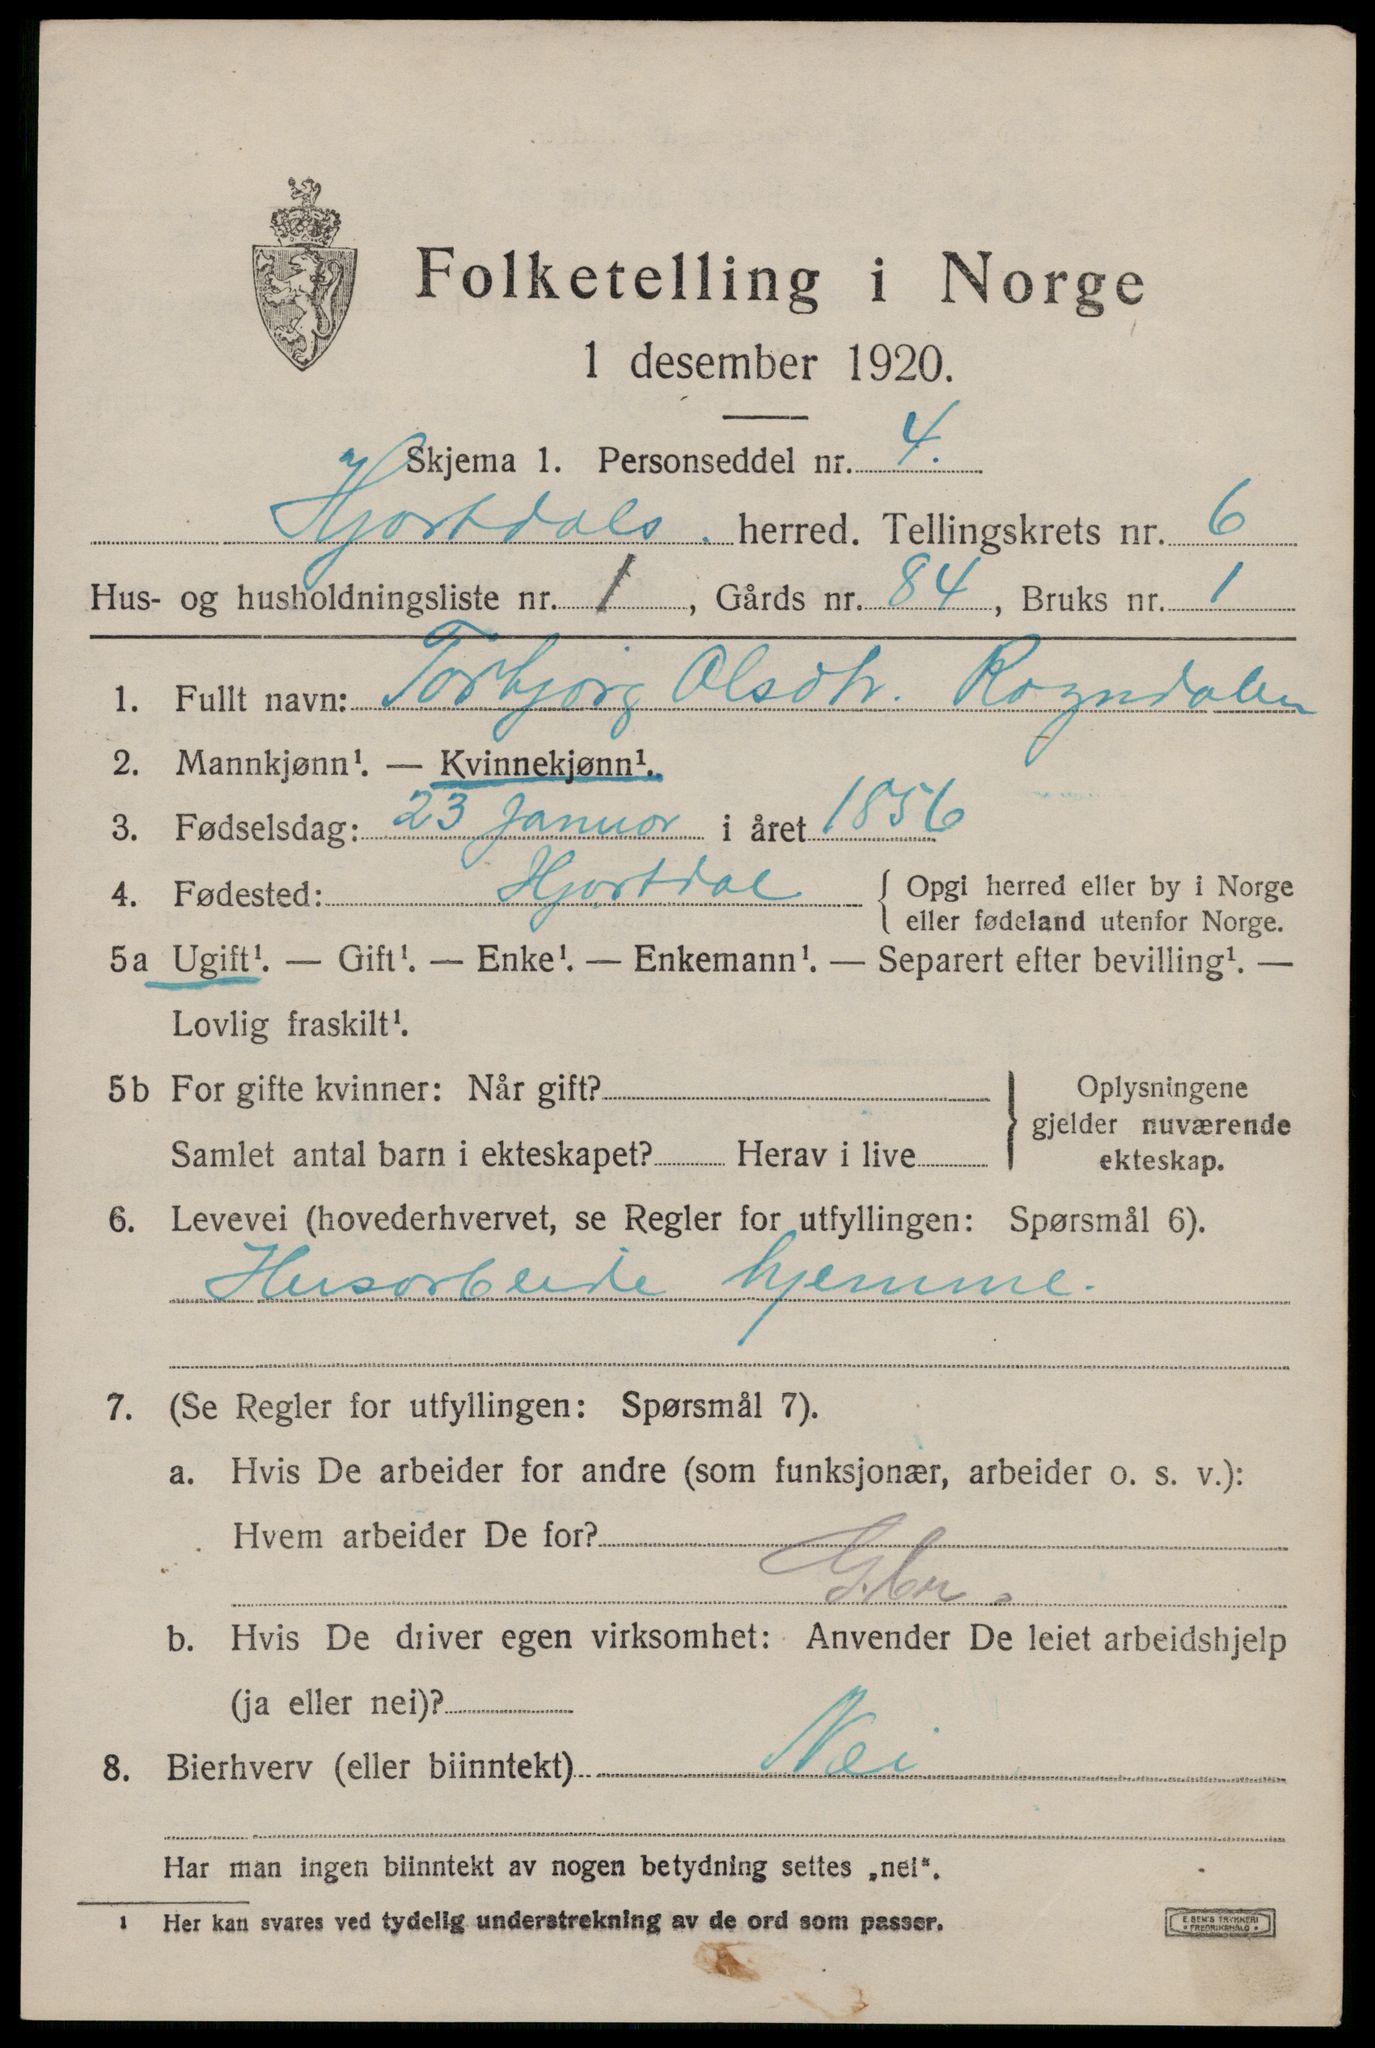 Folketelling i Norge
1 desember 1920.
Skjema 1. Personseddel nr. 4.
Hjortdals. herred. Tellingskrets nr. 6
Hus- og husholdningsliste nr. 1, Gårds nr. 84, Bruks nr. 1
1. Fullt navn: Torbjørg Olsdtr. Rogndalen
2. Mannkjønn¹. — Kvinnekjønn¹.
3. Fødselsdag: 23 januar i året 1856
4. Fødested: Hjortdal { Opgi herred eller by i Norge
eller fødeland utenfor Norge.
5a Ugift¹. — Gift¹. — Enke¹. — Enkemann¹. — Separert efter bevilling¹. —
Lovlig fraskilt¹.
5b For gifte kvinner: Når gift? } Oplysningene
gjelder nuværende
Samlet antal barn i ekteskapet? Herav i live ekteskap.
6. Levevei (hovederhvervet, se Regler for utfyllingen: Spørsmål 6).
Husarbeide hjemme.
7. (Se Regler for utfyllingen: Spørsmål 7).
a. Hvis De arbeider for andre (som funksjonær, arbeider o. s. v.):
Hvem arbeider De for?
b. Hvis De driver egen virksomhet: Anvender De leiet arbeidshjelp
(ja eller nei)?
8. Bierhverv (eller biinntekt) Nei
Har man ingen biinntekt av nogen betydning settes „nei“.
1 Her kan svares ved tydelig understrekning av de ord som passer.
E. SEM'S TRYKKERI
FREDRIKSHALD